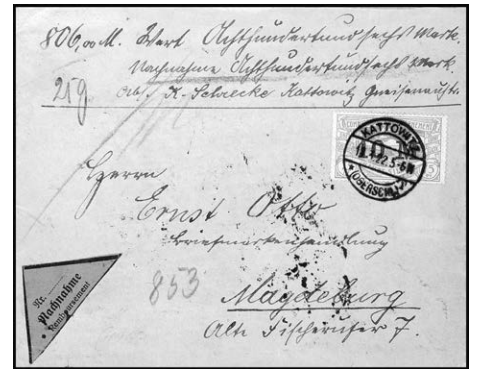 806,00 M. Wert Achthundertundsechs Mark.
Nachnahme Achthundertundsechs Mark
21g. Abs. K. Schiecke Kattowitz Gneisenaustr.
KATTOWITZ
.22.5-6N
(OBERSCHL.)
Herrn
Ernst Otto
Briefmarkenhandlung
853
Magdeburg
Alte Fischerufer 7.
Nr.
Nachnahme
Remboursement